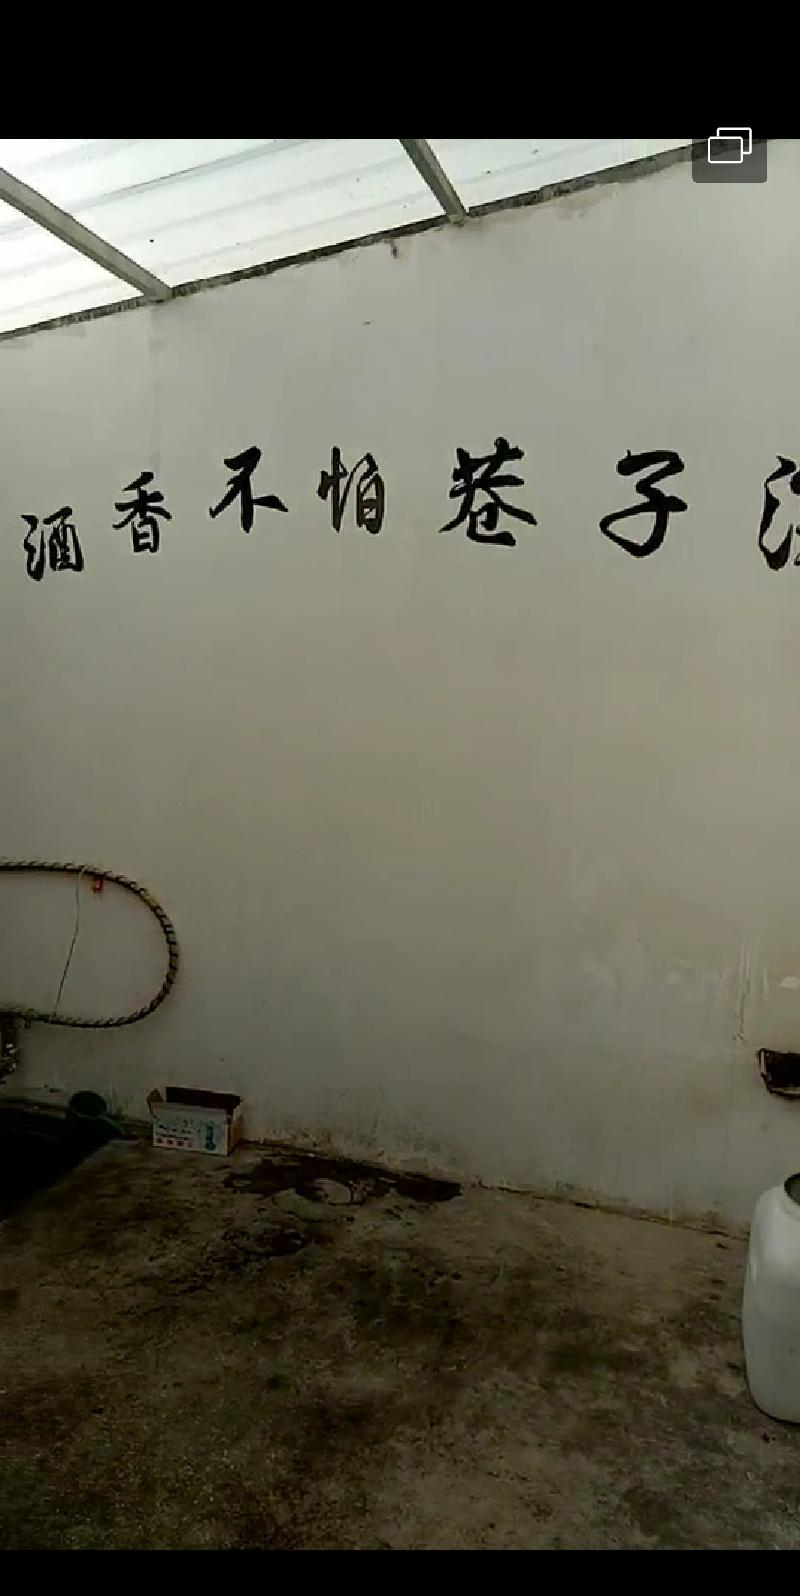 酒香不怕巷子